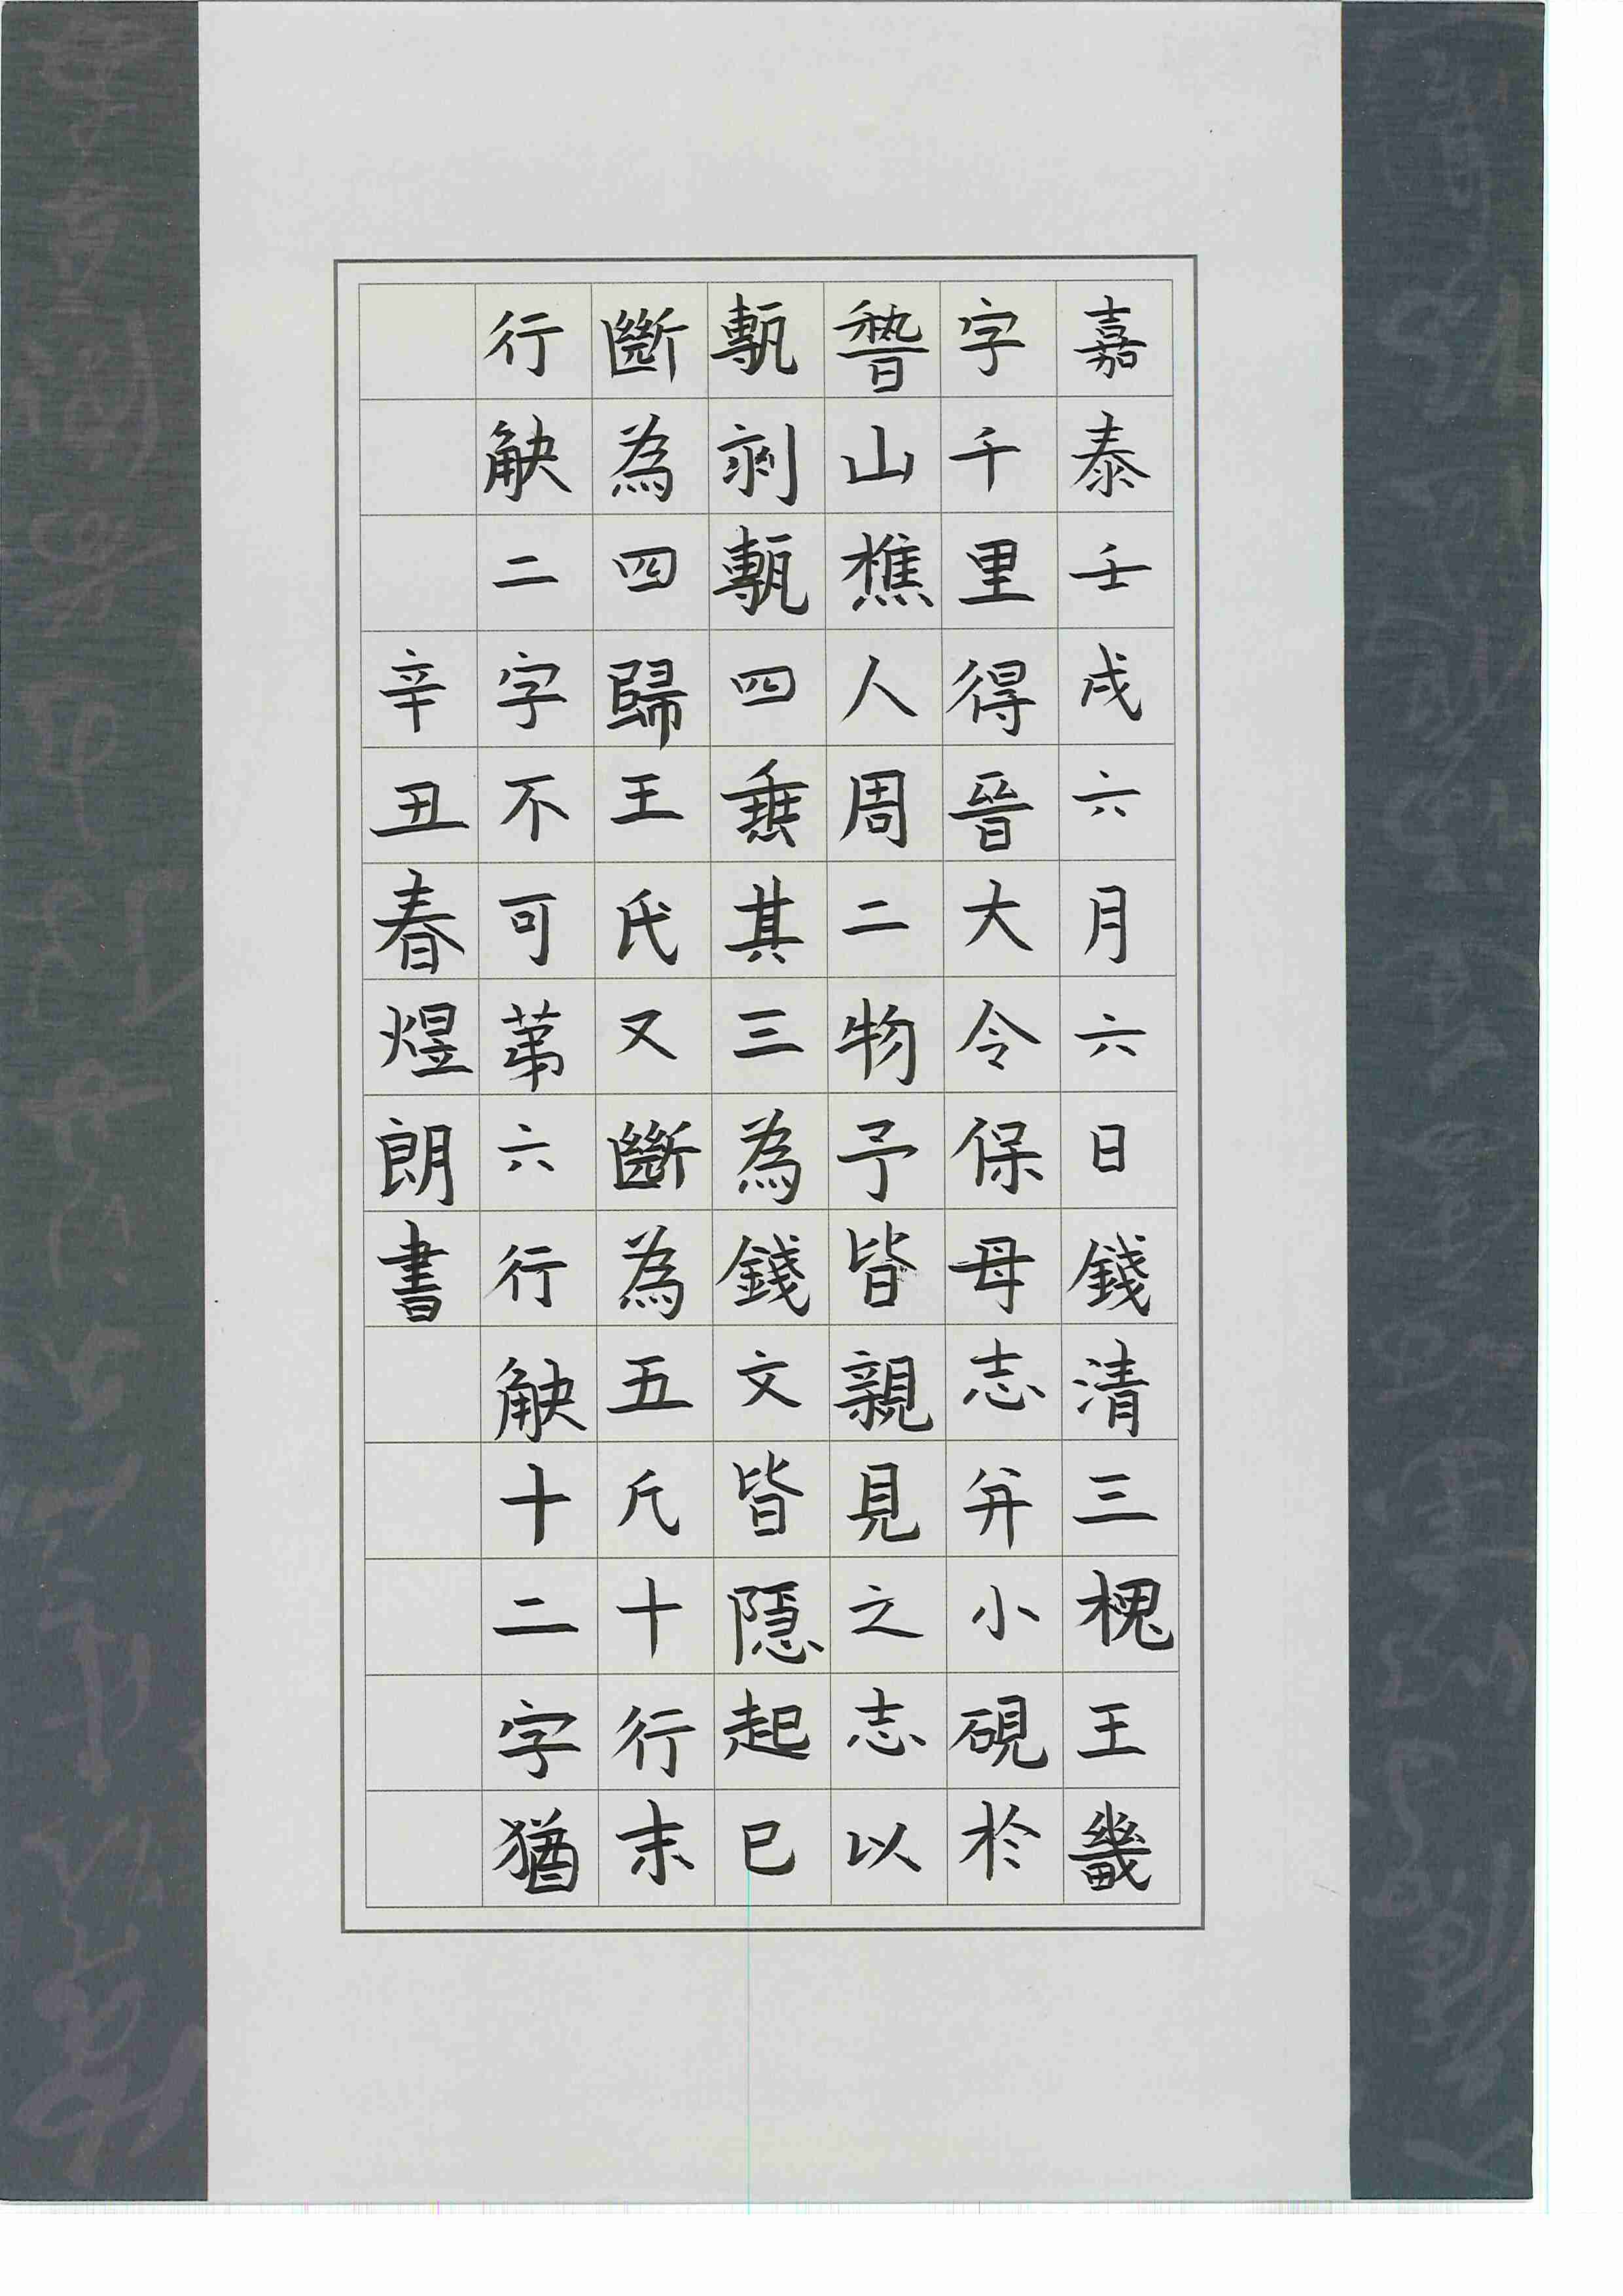 嘉泰壬戌六月六日錢清三槐王畿
字千里得晉大令保母志并小硯於
稽山樵人周二物予皆親見之志以
甎刻甎四垂其三為錢文皆隱起已
斷為四歸王氏又斷為五凡十行末
行缺二字不可苐六行缺十二字猶
辛丑春煜朗書